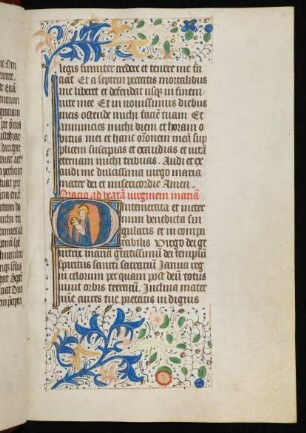 legis firmiter credere et tenere me fa
ciat Et a septem peccatis mortalibus
me liberet et defendat usq in finem
vite mee Et in novissimis diebus
meis ostende michi faciē tuam Et
annuncies michi diem et horam o
bitus mei et hanc orōnem meā sup
plicem suscipias et exaudias et vitā
eternam michi tribuas Audi et ex
audi me dulcissima virgo maria
mater dei et misericordie Amen
ad beatā virginem mariā
O Intemerata et in eter
num benedicta sin
gularis et in compa
rabilis virgo dei ge
nitrix maria gratissimū dei templū
spiritus sancti sacrariū Janua reg
ni celorum per quam post deū totus
vivit orbis terrarū Inclina mater
mīe aures tue pietatis indignis